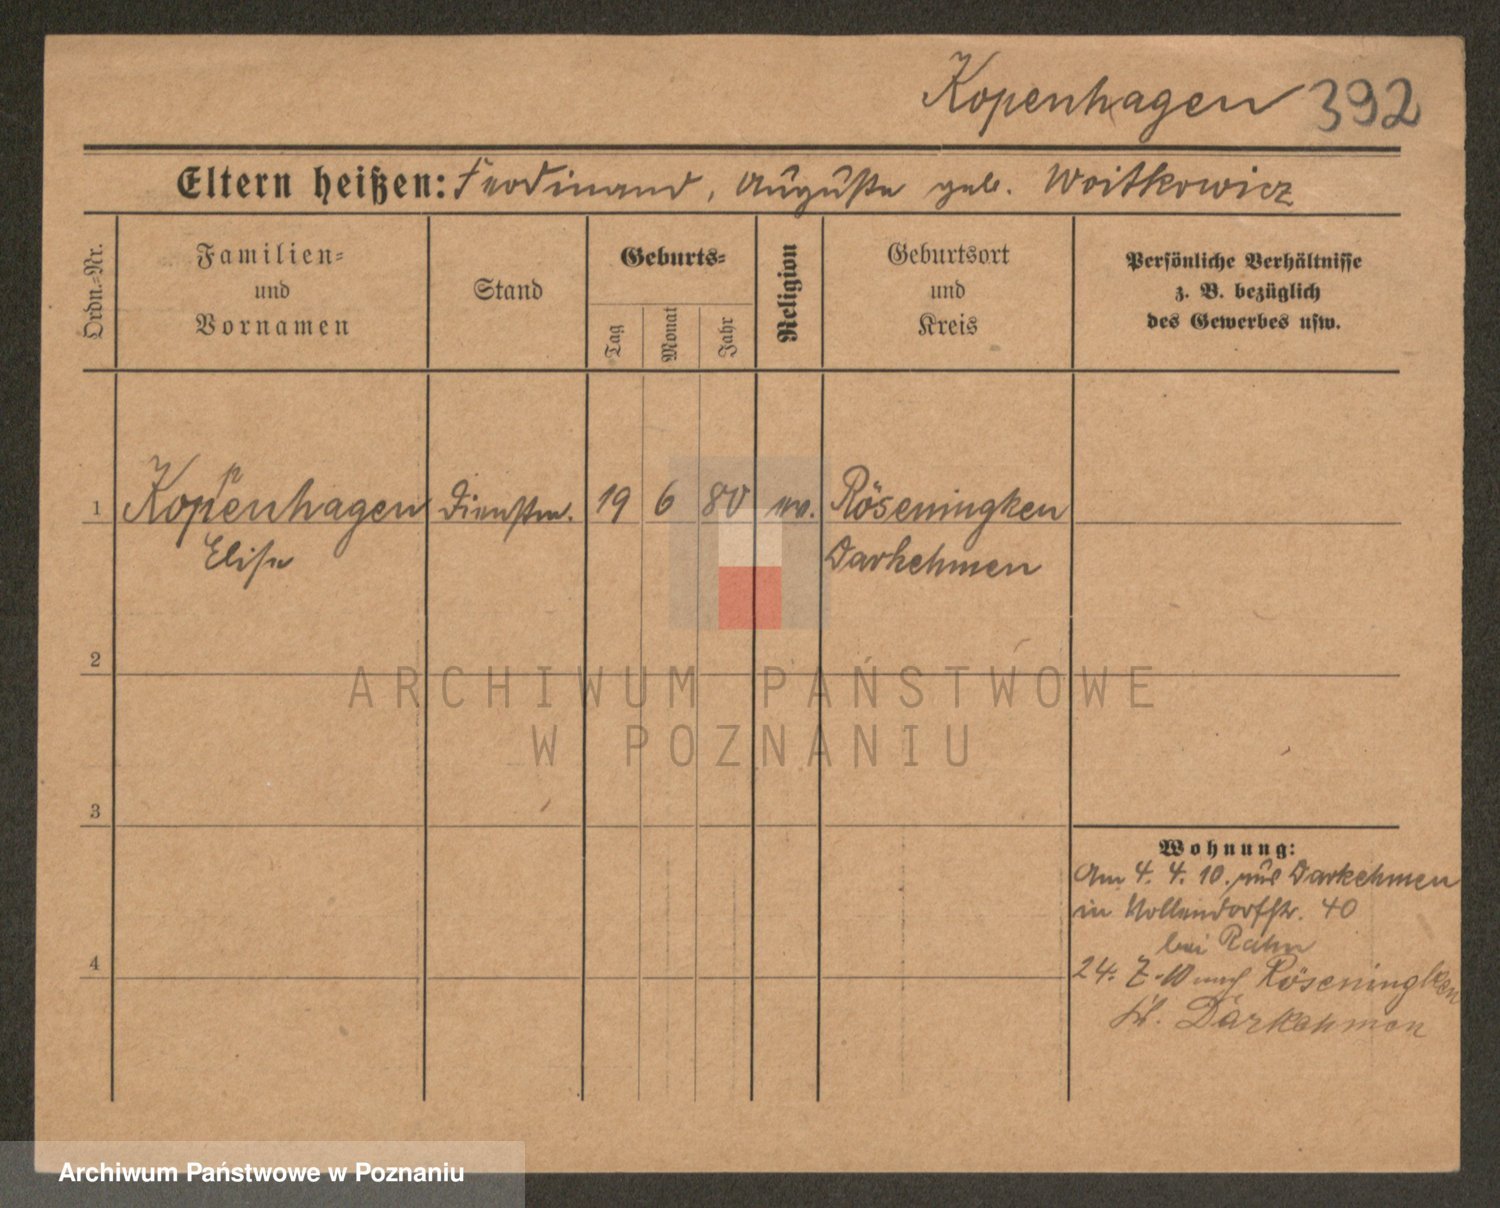 Kopenhagen 392
Eltern heißen: Ferdinand, Auguste geb. Woitkowicz
Ordn.-Nr.
Familien-
und
Vornamen
Stand
Geburts-
Tag
Monat
Jahr
Religion
Geburtsort
und
Kreis
Persönliche Verhältnisse
z. B. bezüglich
des Gewerbes usw.
1 Kopenhagen Dienstm. 19 6 80 ev. Röseningken
Elise Darkehmen
2
ARCHIWUM PAŃSTWOWE
W POZNANIU
3
Wohnung:
Am 4. 4. 10. aus Darkehmen
in Nollendorfstr. 40
bei Rahn
4
24. 7. 10 nach Röseningken
Kr. Darkehmen
Archiwum Państwowe w Poznaniu